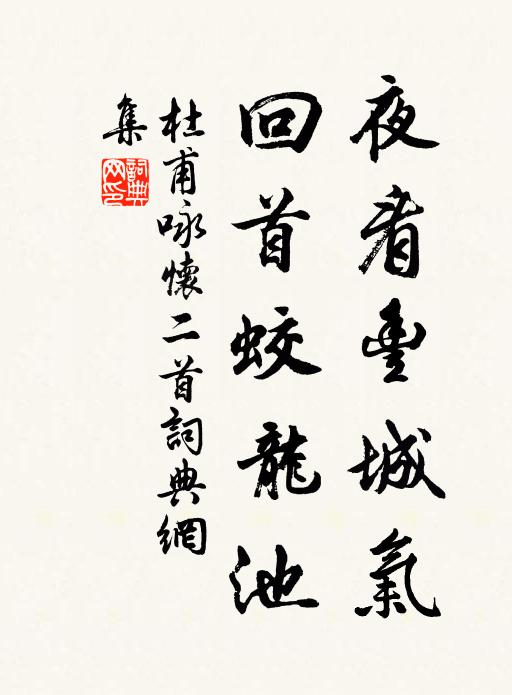 夜看豐城氣
回首蛟龍池
杜甫咏懷二首詞典網
集
詞典網印